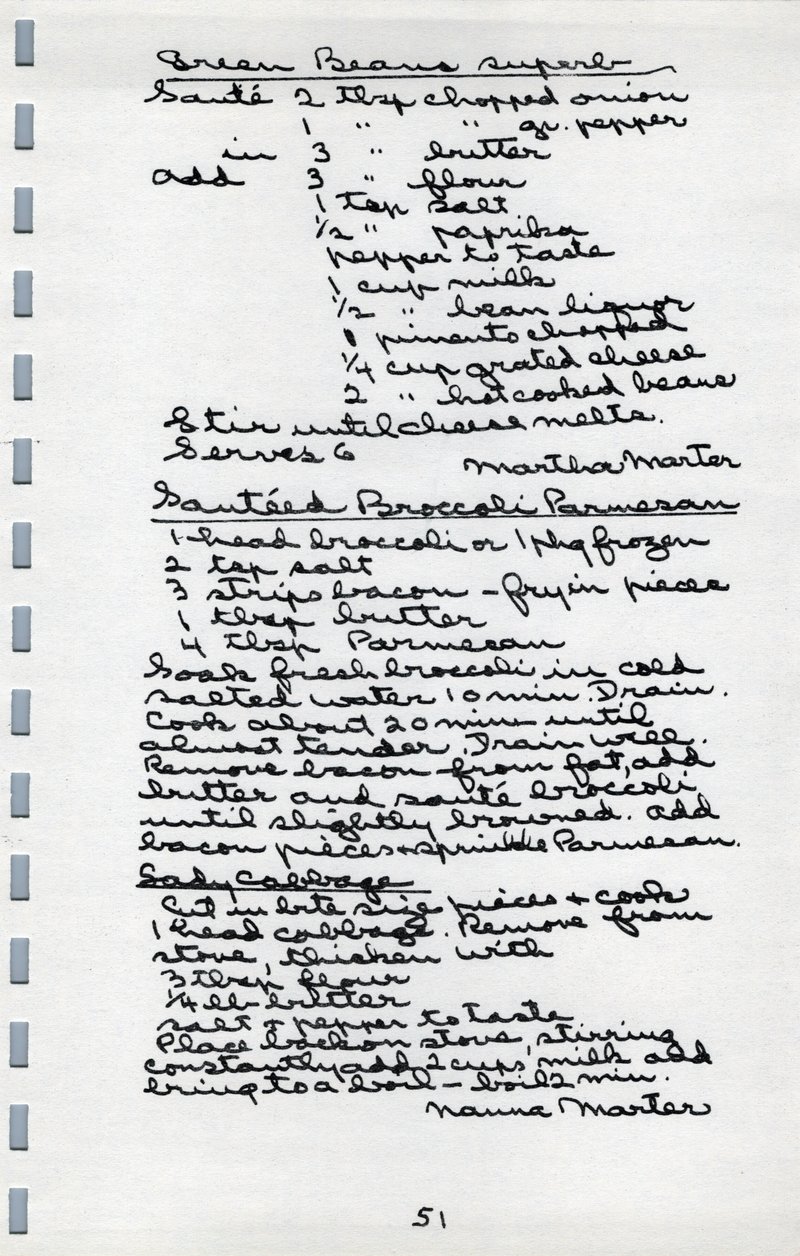 Green Beans superb
Sauté 2 tbsp chopped onion
1 " " gr. pepper
in 3 " butter
add 3 " flour
1 tsp salt
1/2 " paprika
pepper to taste
1 cup milk
1/2 " bean liquor
1 pimento chopped
1/4 cup grated cheese
2 " hot cooked beans
Stir until cheese melts.
Serves 6
Martha Marter
Sautéed Broccoli Parmesan
1 head broccoli or 1 pkg frozen
2 tsp salt
3 strips bacon - fry in pieces
1 tbsp butter
4 tbsp Parmesan
Soak fresh broccoli in cold
salted water 10 min. Drain.
Cook about 20 min until
almost tender. Drain well.
Remove bacon from fat, add
butter and sauté broccoli
until slightly browned. add
bacon pieces + sprinkle Parmesan.
Lady Cabbage
Cut in bite size pieces + cook
1 head cabbage. Remove from
stove, thicken with
3 tbsp flour
1/4 lb butter
salt + pepper to taste
Place back on stove, stirring
constantly add 2 cups milk add
bring to a boil - boil 2 min.
Nanna Marter
51